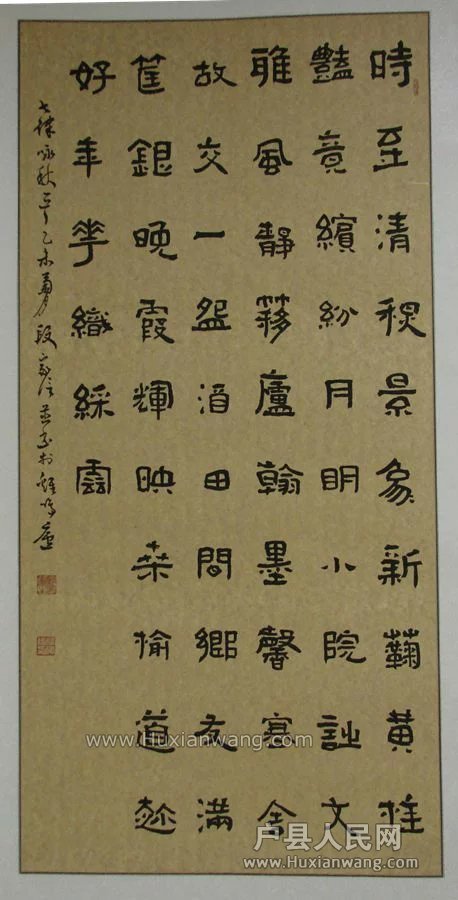 時至清秋景象新蘜黃桂
豔竟繽紛月明小院詩文
雅風靜蓬廬翰墨馨寒舍
故交一盌酒田間鄉友滿
筐銀晚霞輝映桑榆道趁
好年華織綵雲
七律咏秋 乙未夏 段 並書於 廬
www.Huxianwang.com
户县人民网
www.Huxianwang.com